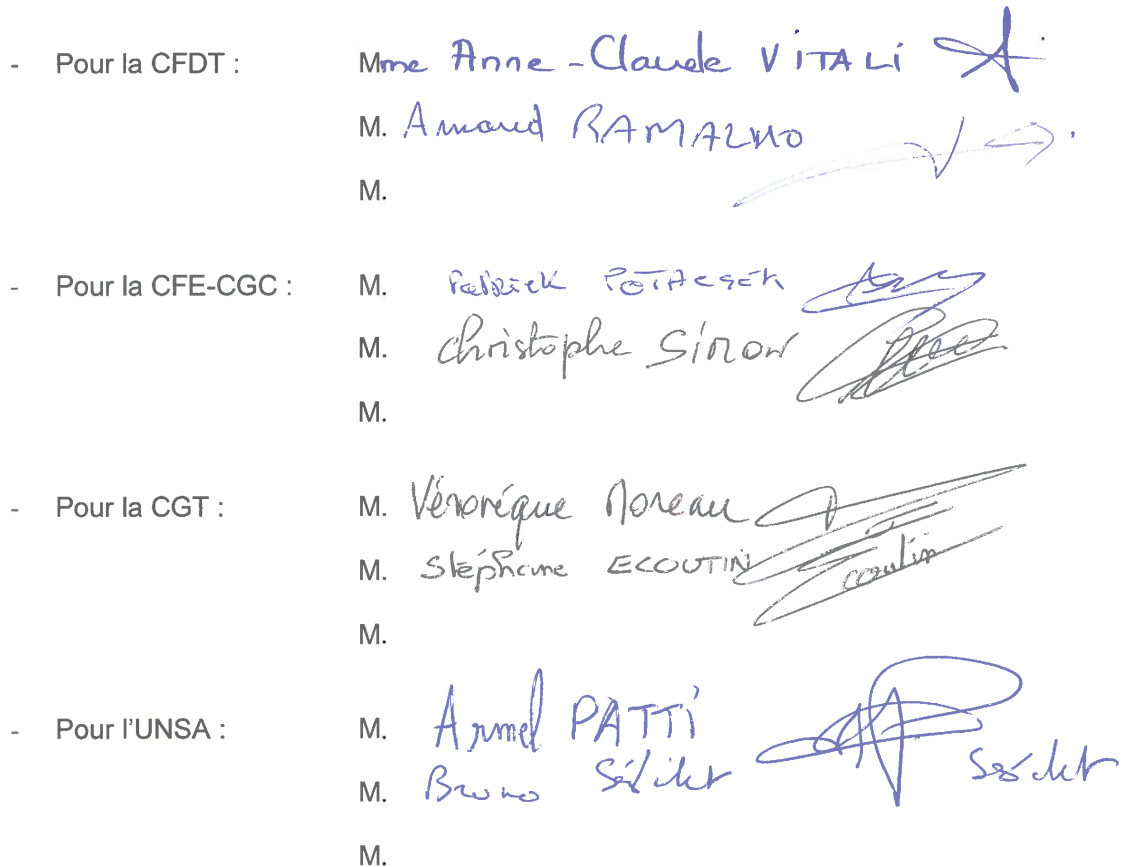 - Pour la CFDT : Mme Anne-Claude VITALI
M. Arnaud RAMALHO
M.
- Pour la CFE-CGC : M. Patrick
M. Christophe SIMON
M.
- Pour la CGT : M. Véronique Moreau
M. Stéphane ECOUTIN Ecoutin
M.
- Pour l'UNSA : M. Armel PATTI
M. Bruno
M.